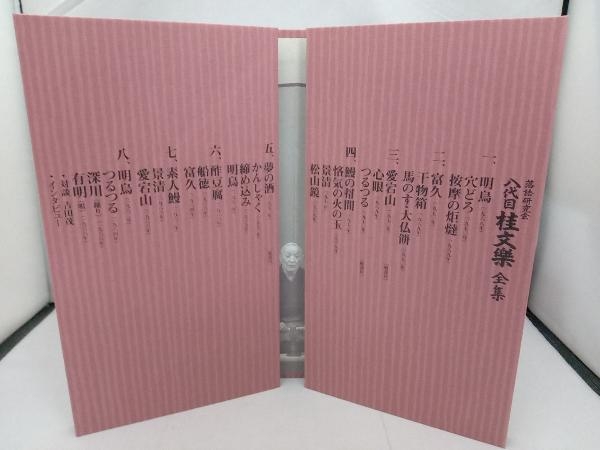 落語研究会
八代目 桂文樂 全集
一、明烏
穴どろ
按摩の炬燵
二、富久
干物箱
馬のす 大仏餅
三、愛宕山
心眼
つるつる
四、鰻の幇間
悋気の火の玉
景清
松山鏡
五、夢の酒
かんしゃく
締め込み
明烏
六、酢豆腐
船徳
富久
七、素人鰻
景清
愛宕山
八、明烏
つるつる
深川
有明
・対談 吉田茂
・インタビュー